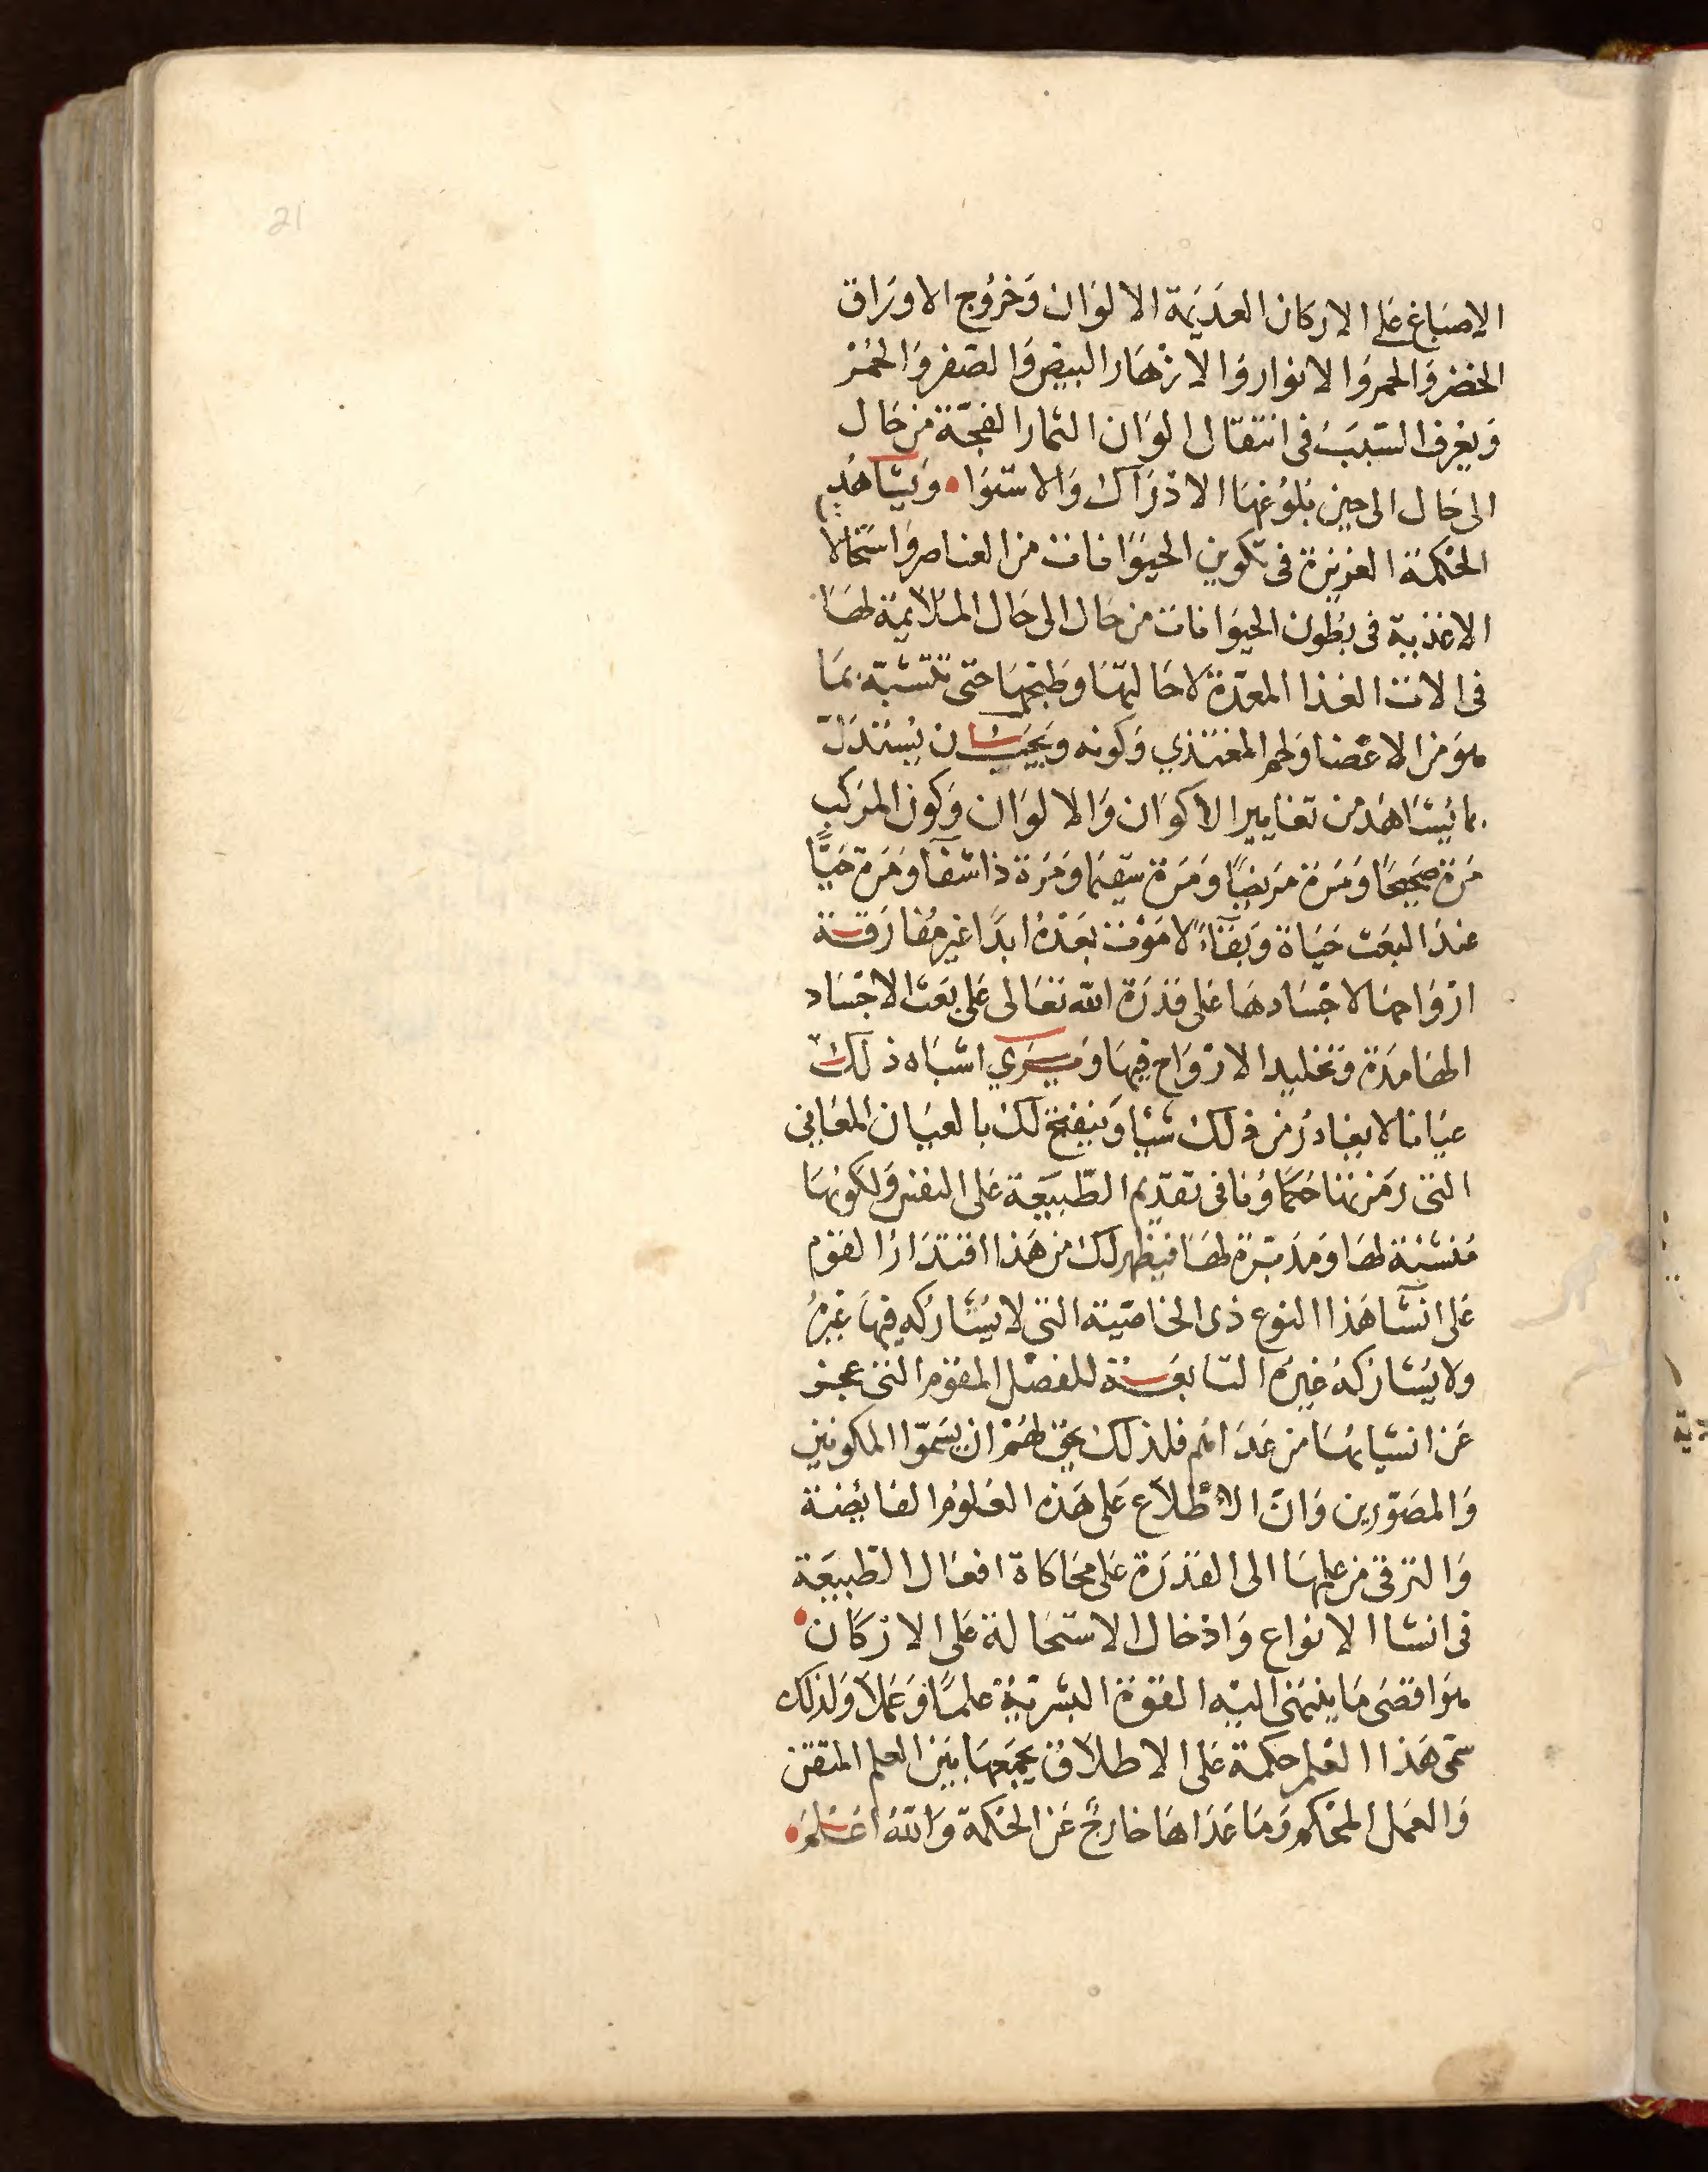 21
الاصباغ على الاركان العديمة الالوان وخروج الاوراق
الخضر والحمر والانوار والازهار البيض والصفر والحمر
ويعرف السبب فى انتقال الوان الثمار الفجّة من حال
الى حال الى حين بلوغها الادراك والاستوا • ويشاهد
الحكمة العزيزة فى تكوين الحيوانات من العناصر واستحالا
الاغذية فى بطون الحيوانات من حال الى حال الملايمة لها
فى الات الغذا المعدّة لاحالتها وطبخها حتى تتشبّه بما
هو من الاعضا ولحم المغتذي وكونه ويجب ان يستدلّ
بما يشاهد من تغايير الاكوان والالوان وكون المركب
مرة صحيحًا ومرة مريضًا ومرة سقيما ومرة ذا شفآ ومرة حيًّا
عند البعث حياة وبقآءً لا موت بعده ابدًا غير مفارقة
ارواحها لاجسادها على قدرة الله تعالى على بعث الاجساد
الهامدة وتخليد الارواح فيها ويرى اشباه ذلك
عيانا لا يغادر من ذلك شيا وينفتح لك بالعيان المعانى
التى رمزتها حكماؤنا فى تقديم الطّبيعة على النفس ولكونها
منشئة لها ومدبّرة لها فيظهر لك من هذا اقتدار القوم
على انشآ هذا النوع ذى الخاصّيّة التى لا يشاركه فيها غيره
ولا يشاركه غيره التابعة للفصل المقوّم التى عجز
عن انشيائها من عداهم فلذلك يحق لهم ان يسمّوا المكونين
والمصوّرين وانّ الاطّلاع على هذه العلوم الفائضة
والترقى من علمها الى القدرة على محاكاة افعال الطّبيعة
فى انشا الانواع وادخال الاستحالة على الاركان •
هو اقصى ما ينتهى اليه القوة البشريّة علمًا وعملا ولذلك
سمّى هذا العلم حكمة على الاطلاق بجمعها بين العلم المتقن
والعمل المحكم وما عداها خارجٌ عن الحكمة والله اعلم •